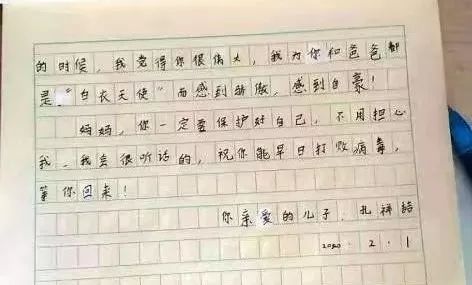 的时候，我觉得你很伟大，我为你和爸爸都
是"白衣天使"而感到骄傲，感到自豪！
妈妈，你一定要保护好自己，不用担心
我，我会很听话的，祝你能早日打败病毒，
等你回来！
你亲爱的儿子：扎祥
2020.2.1